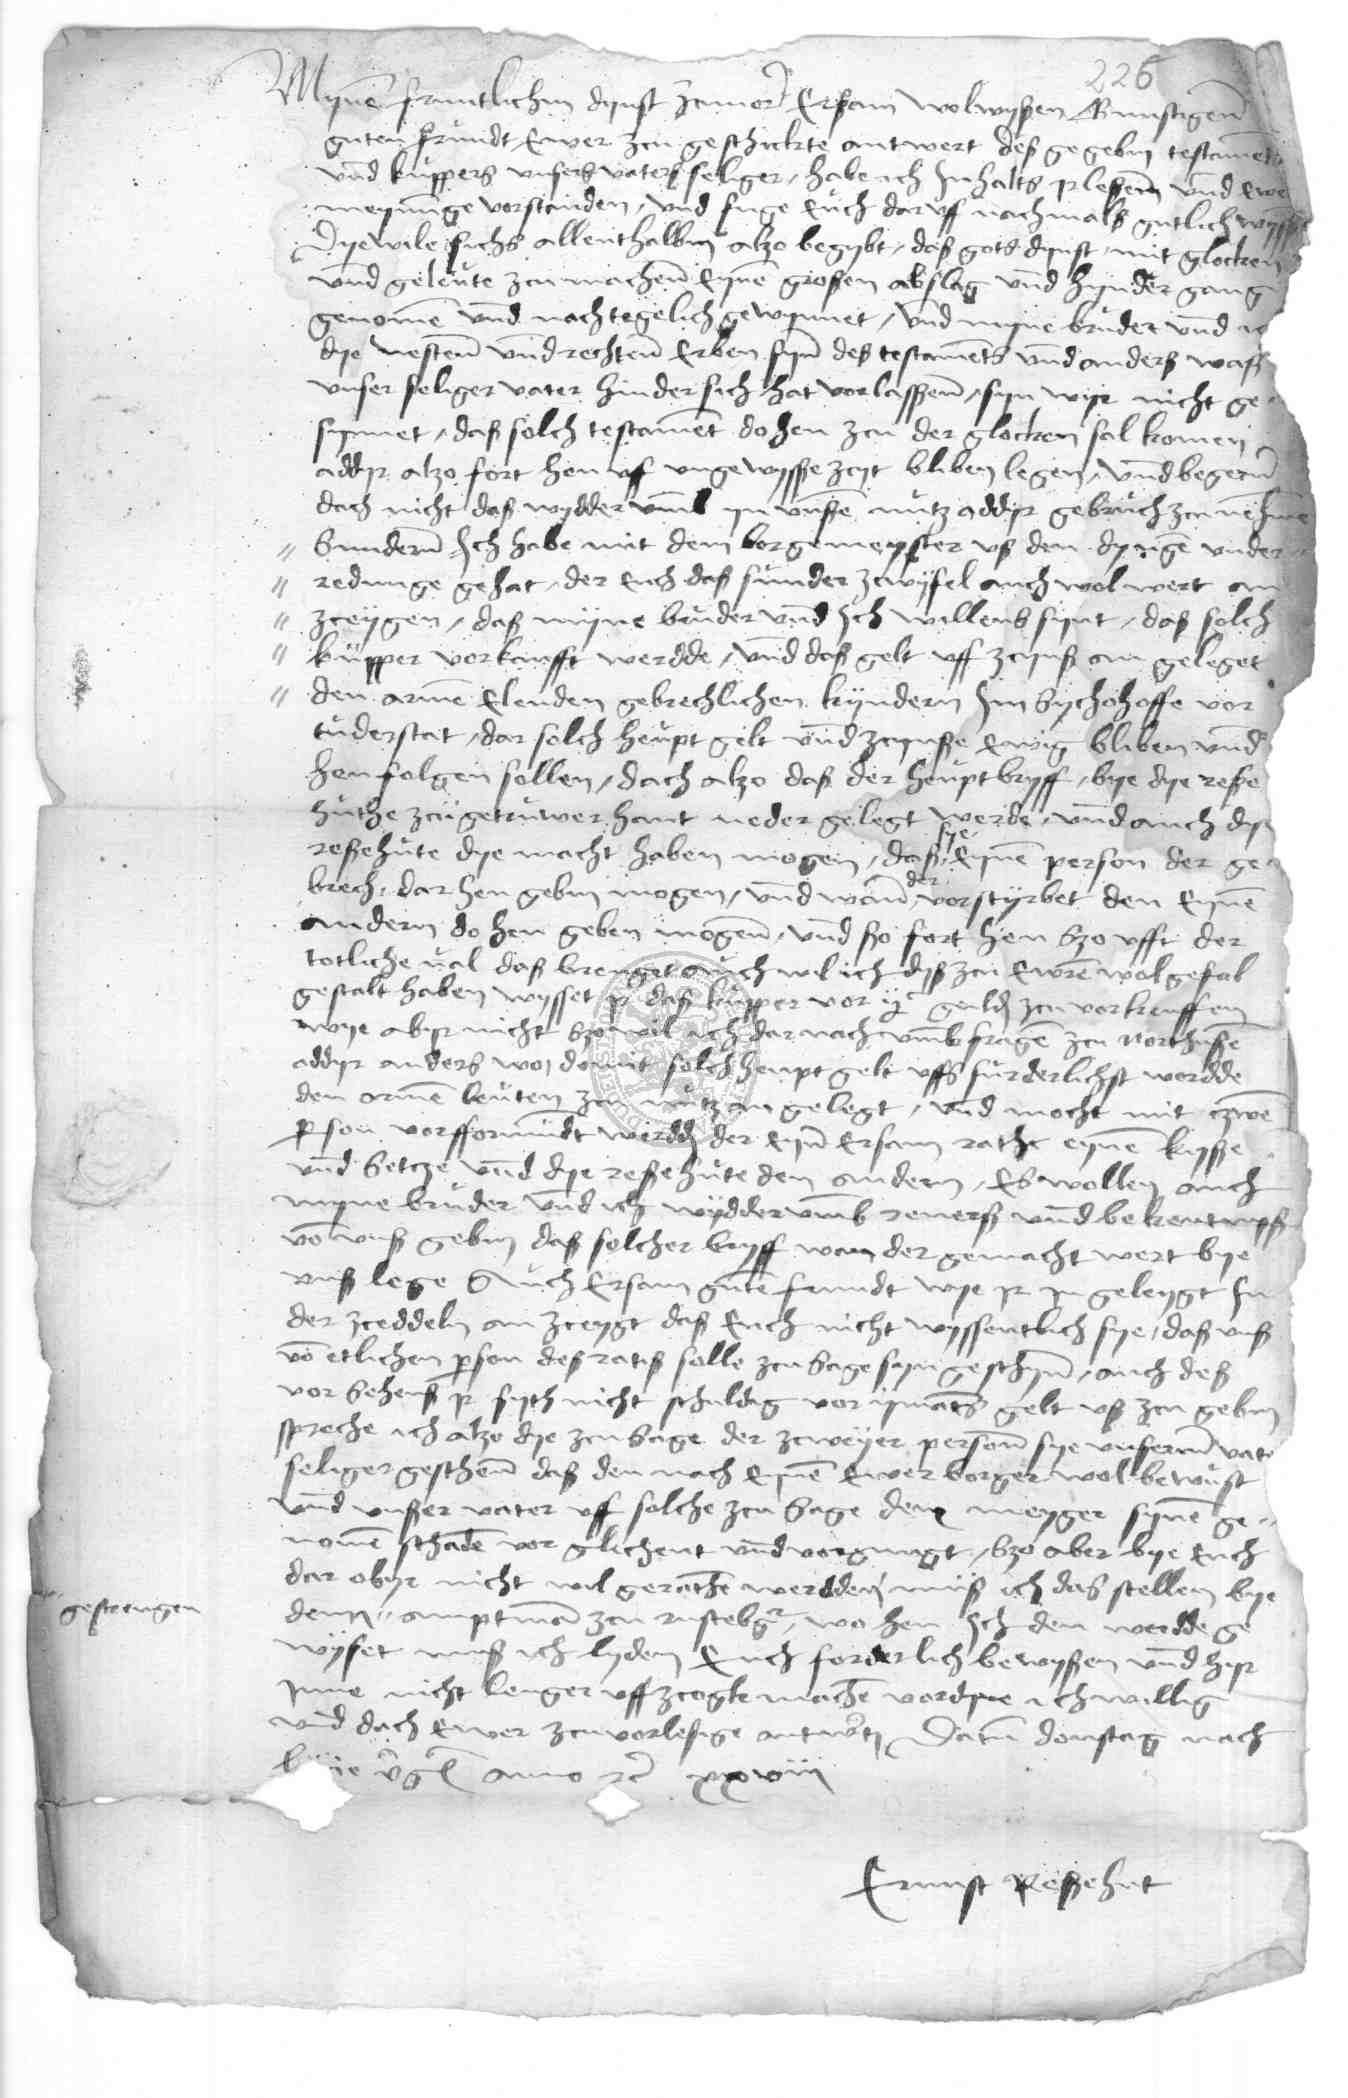 226
Mynen fruntlichin dynst zcuvor Ersam wolwysßen Gunstigenn
guten frundt, Ewer zcu geschickte antwert des gegebin testaments
vnd kuppers vnsers vaters seliger, habe ich Inhalts vnd
meynunge vorstanden, vnd fuge Euch daruff nachmals gutlich
Dyewile sichs allenthalbin alzo begybt, das gots dynst, mit glocken
vnd geleute zcu machenn Eynen grosßen abslag vnd hynder gang
genomen vnd nach tegelich gewynnet, vnd myne bruder vnd
dye nestenn vnd rechtenn Erben syn des testaments vnd anders waß
vnser seliger vater hinder sich hat vorlasßenn, syn wyr nicht ge
synnet, daß solch testament do hen zcu der glocken sal komen
addyr alzo fort hen vff vngewysße zcyt bliben legen, vnd begern
dach nicht daß wydder vmb yn vnßen nutz addyr gebruch zcu nehmen
Sundern Ich habe mit dem borgemeyster vß den dyngen vnder
redunge gehat, der Euch daß sunder zcwyfel auch wol wert an
zceygen, daß myne bruder vnd Ich willens synt, daß solch
kupper vorkaufft werdde, vnd daß gelt vff zcynß an geleget
den armen Elenden gebrechlichen kyndern Im Sychohoffe vor
tuderstat, dar solch heupt gelt vnd zcynße Ewig bliben vnd
hen folgen sollen, dach alzo daß der heuptbryff, bye dye reße
huthe zcu getruwer hant neder gelegt werde, vnd auch dye
reßehute dye macht haben mogen, daß sye Eynen person der ge
brech, dar hen gebin mogen, vnd wan der vorstyrbet den Eynen
andern do hen geben mogenn, vnd ßo fort hen Szo vfft der
totliche val daß brenget Auch wil ich dyß zcu Ewren wolgefal
gestalt haben wysset yr daß kupper vor guld zcu vorkeuffen
wye abyr nicht Szo wil ich dar nach vmb fragen zcu Northußen
addyr anders wo, domit solch heupt gelt vffs furderlichst werdde
den armen leuten zcu nutz an gelegt, vnd mocht mit zcwen
person vorfformundt werdd der Eyn Ersam rathe eynen kysße
vnd Setcze vnd dye reßehute den andern, Es wollen auch
myne bruder vnd ich wydder vmb reuerß vnd bekentnyß
von vnß gebin daß solcher bryff wan der gemacht wert bye
vnß lege Auch Ersam guten frundt wye yr In geleygt In
der zceddeln an zceygt daß Euch nicht wysßentlich sye, daß vnß
von etlichen person des ratß solle zcu sage syn geschyn, auch deß
vor Sehens yr syth nicht schuldig vor ymants gelt vß zcu gebin
spreche ich alzo dye zcu Sage der zcweyer person sye vnserm vater
seliger geschenn daß den nach Eynen Ewer borger wol bewust
vnd vnßer vater vff solche zcu Sage dem meyger synen ge
nomen schaden vor glichent vnd vorgnugt, Szo aber bye Euch
dar obyr nicht wil gerathen werdden muß ich daß stellen bye
gestrengen
dem amptman zcu rustebg, wo hen Ich den werdde ge
wyset muß ich lyden Euch forderlich bewysßen vnd hyr
Inne nicht lenger vffzcogk machen vordyne ich willig
vnd dach Ewer zcuvorlesige antwert, Datum donstag nach
anno xxviii
Ernst Reßehut